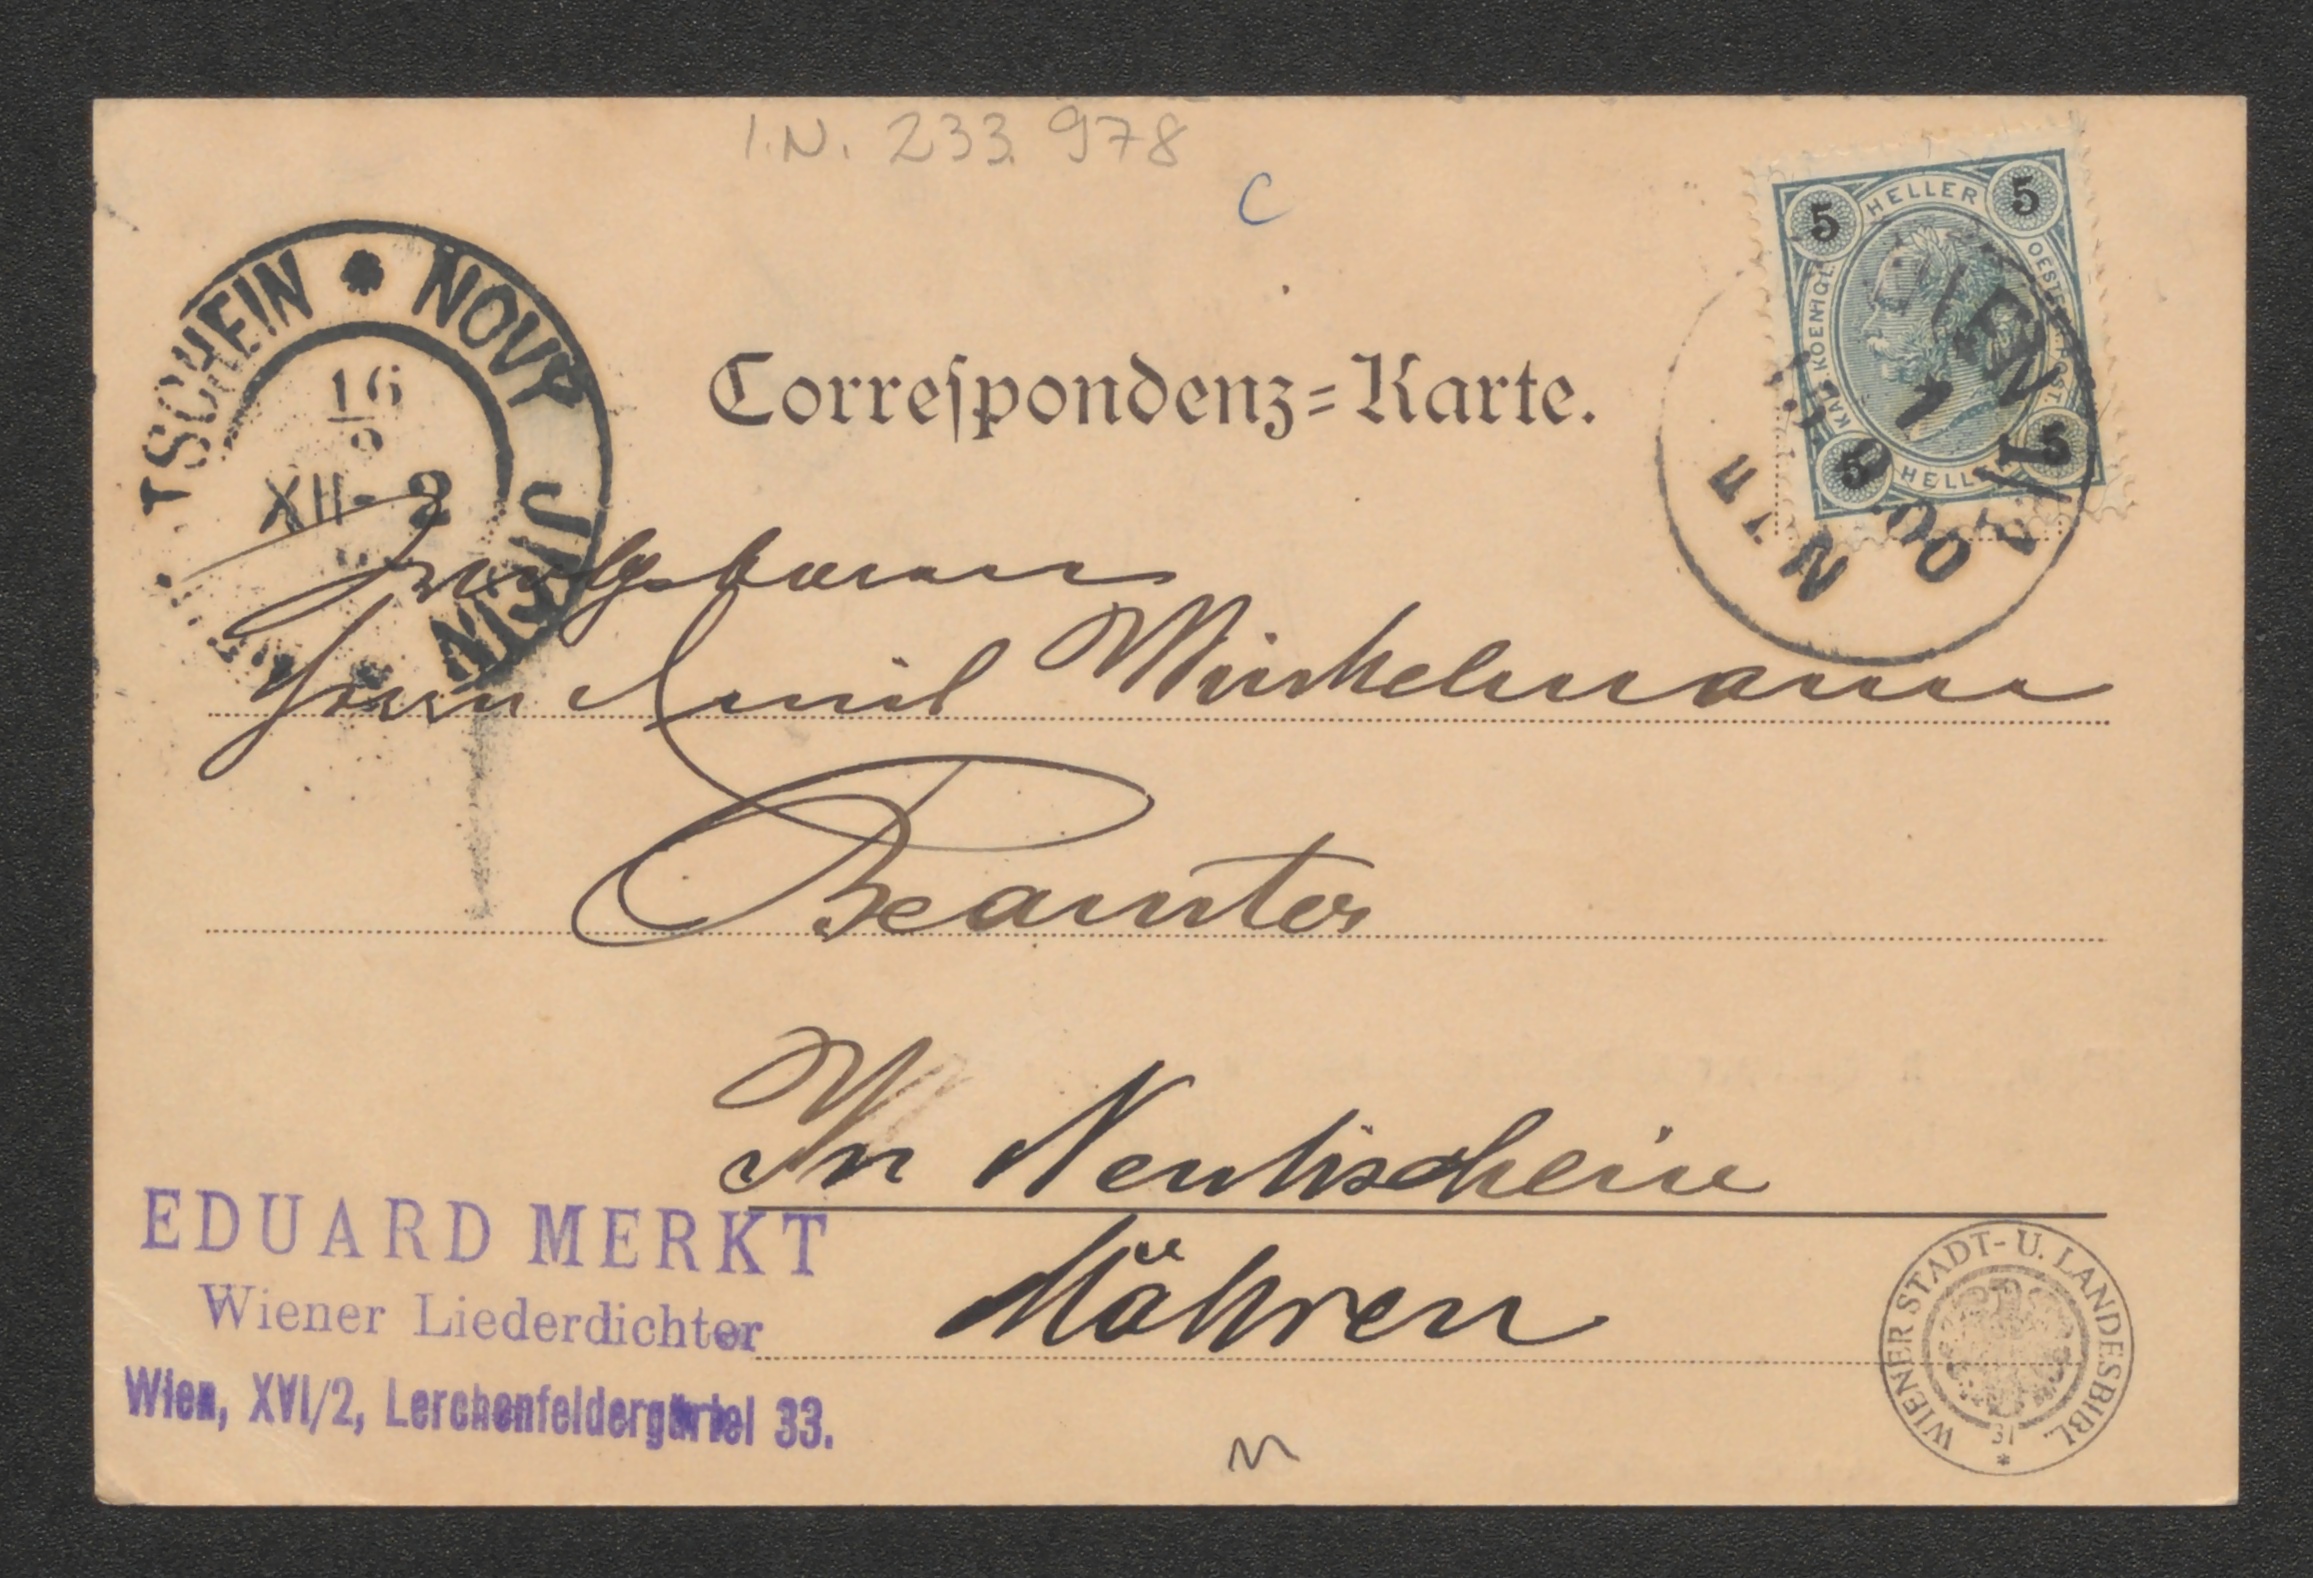 I.N. 233.978
C
5 HELLER 5
KAIS. KOENIGL. OESTERR. POST.
5 HELLER 5
WIEN
TSCHEIN * NOVY JIČIN
16
9
XII - 8
Correspondenz=Karte.
Wohlgeboren
Herrn Emil Winkelmann
Beamter
In Neutischein
Mähren
EDUARD MERKT
Wiener Liederdichter
Wien, XVI/2, Lerchenfeldergürtel 33.
WIENER STADT- U. LANDESBIBL.
31
*